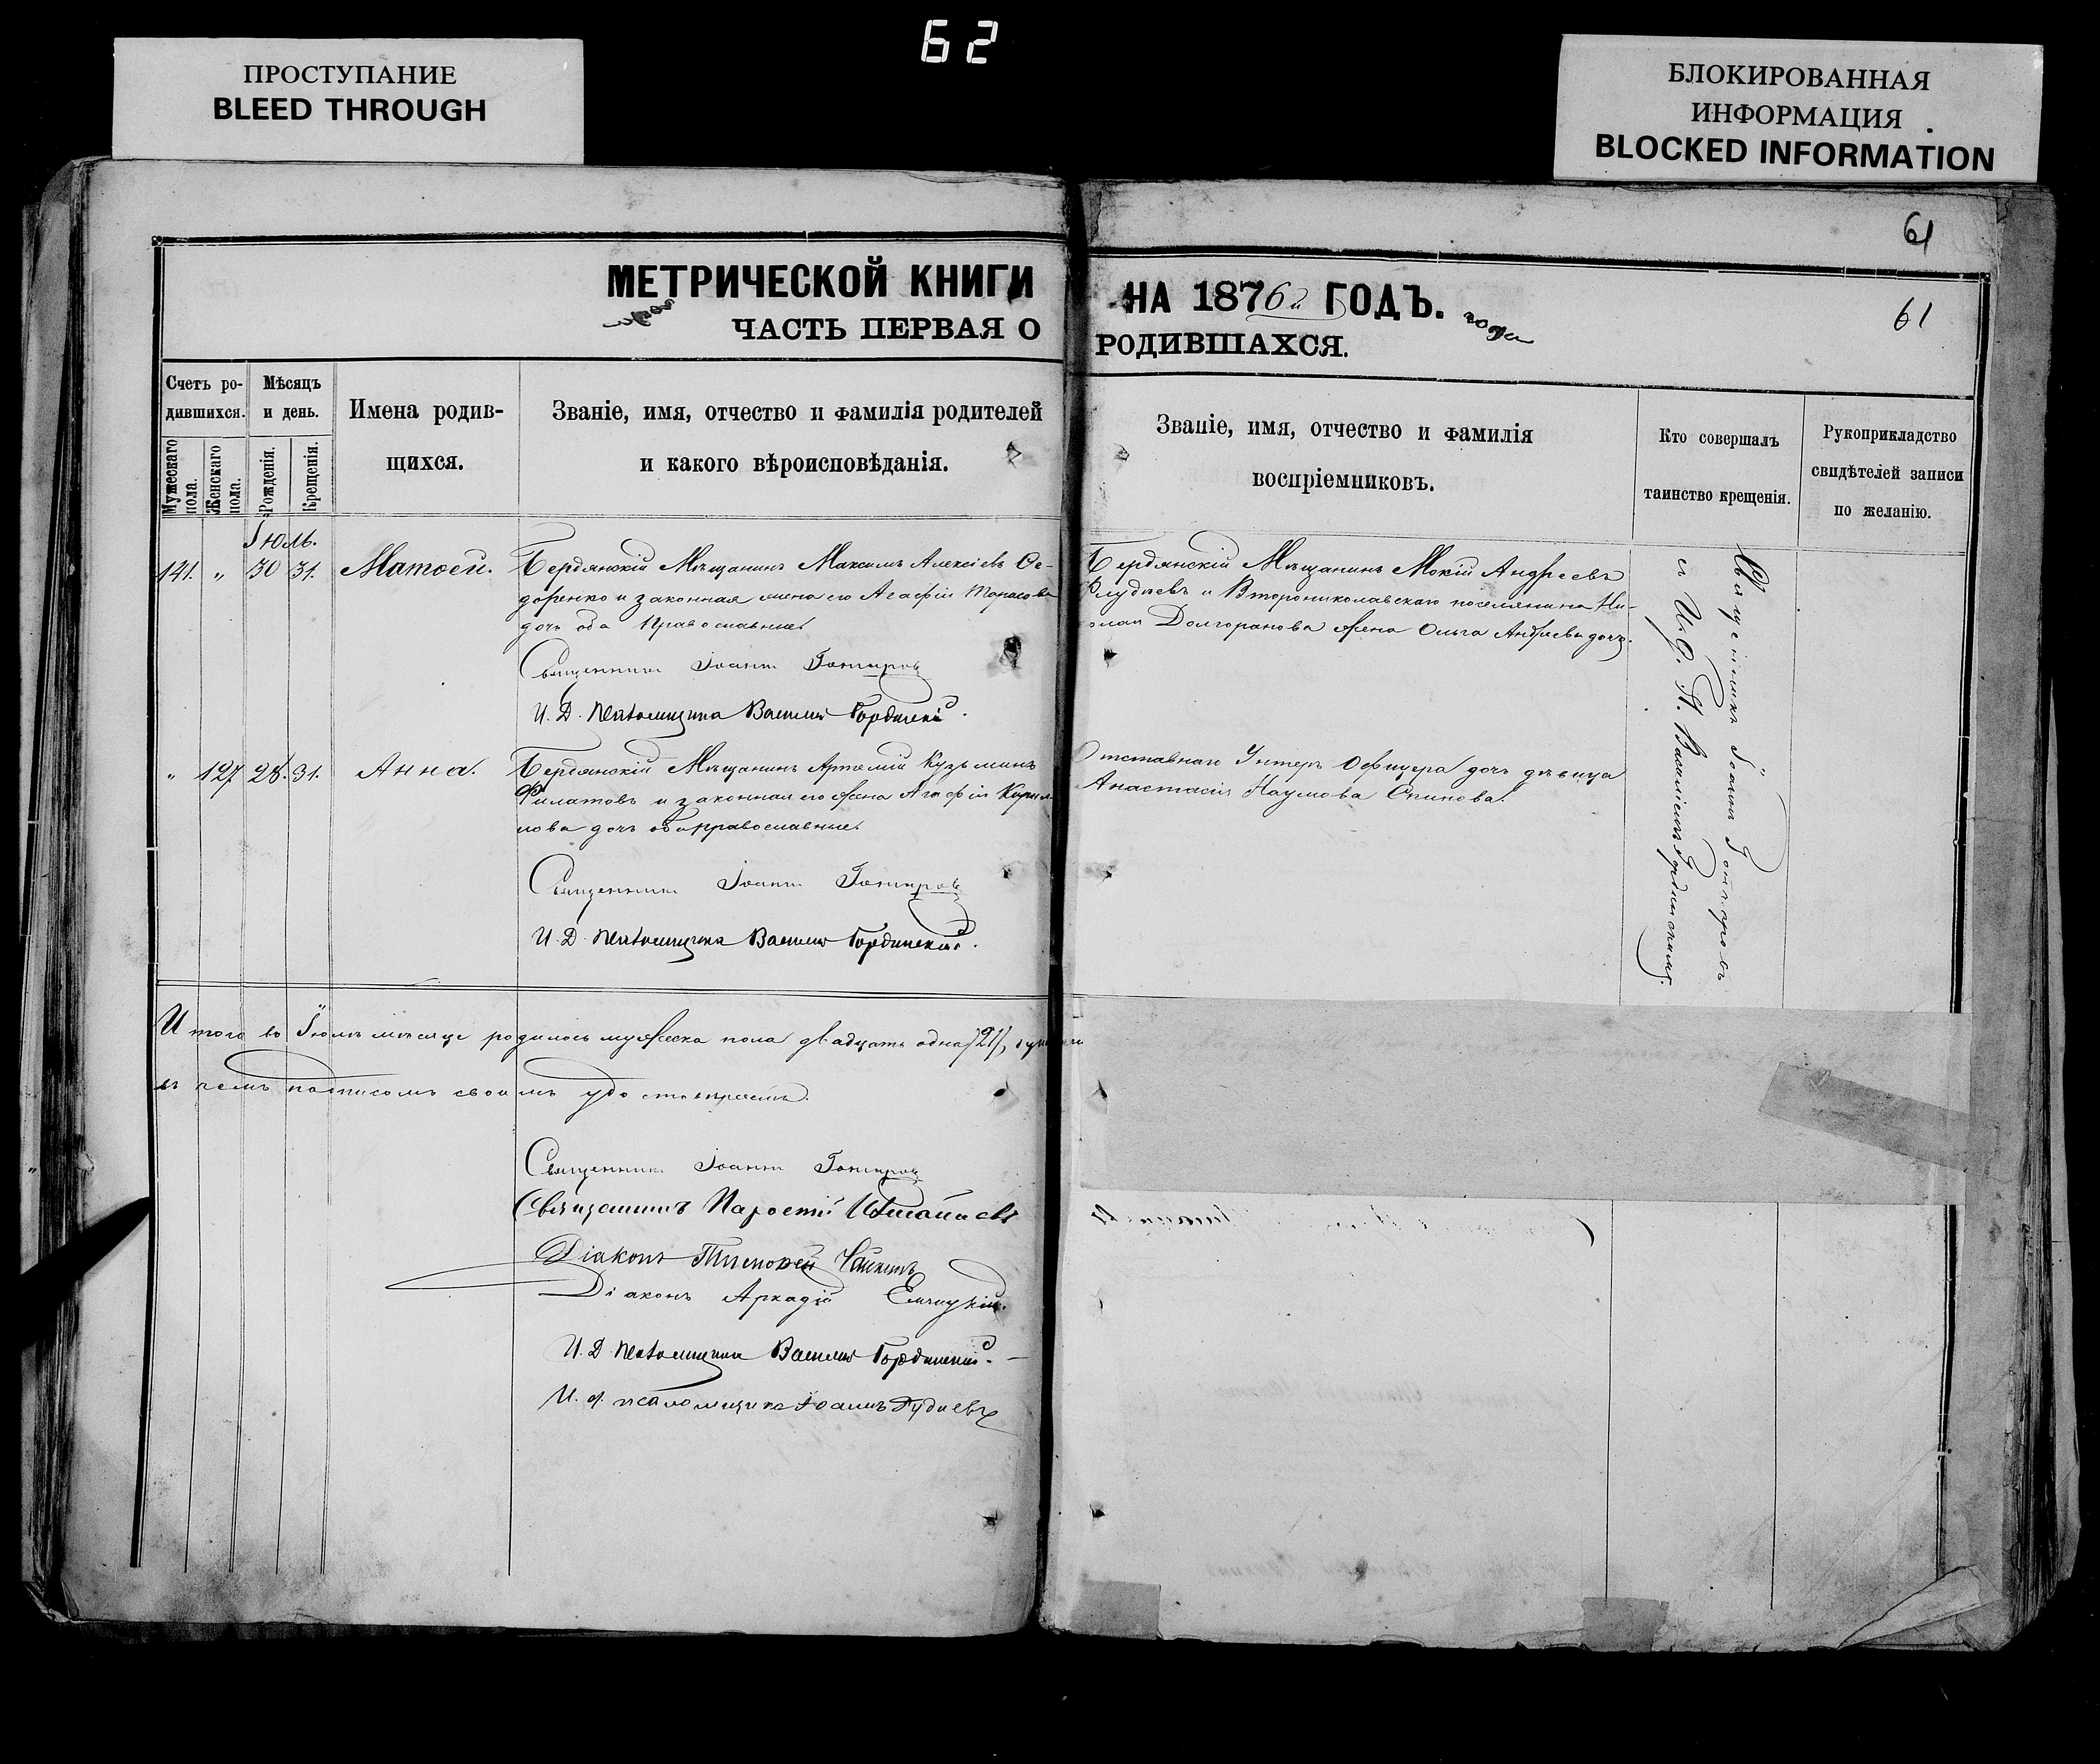 62
ПРОСТУПАНИЕ
BLEED THROUGH
БЛОКИРОВАННАЯ
ИНФОРМАЦИЯ
BLOCKED INFORMATION
61
61
МЕТРИЧЕСКОЙ КНИГИ НА 1876й ГОДЪ. года
ЧАСТЬ ПЕРВАЯ О РОДИВШАХСЯ.
Счетъ ро-
дившихся.
Мужескаго пола.
Женскаго пола.
Мѣсяцъ
и день.
Рожденія.
Крещенія.
Имена родив-
щихся.
Званіе, имя, отчество и фамилія родителей
и какого вѣроисповѣданія.
Званіе, имя, отчество и фамилія
воспріемниковъ.
Кто совершалъ
таинство крещенія.
Рукоприкладство
свидѣтелей записи
по желанію.
Іюль.
141. „ 30 31. Матөей.
Бердянскій Мѣщанинъ Максимъ Алексіевъ Өе-
доренко и законная жена его Агафія Тарасова
дочь оба православные.
Священникъ Іоаннъ
И. Д. Псаломщика Василій Гординскій.
Бердянскій Мѣщанинъ Мокій Андреевъ
и Второниколаевскаго поселянина Ни-
колая жена Ольга Андреева дочь.
Священникъ Іоаннъ
съ И. Д. П. Василіемъ Гординскимъ.
„ 127 28. 31. Анна.
Бердянскій Мѣщанинъ Артемій Кузьминъ
Филатовъ и законная его жена Агафія Кирил-
лова дочь оба православные.
Священникъ Іоаннъ
И. Д. Псаломщика Василій Гординскій.
Отставнаго Унтеръ Офицера дочь дѣвица
Анастасія Наумова
Итого въ Іюлѣ мѣсяце родилось мужеска пола двадцать одна /21/,
въ чемъ подписомъ своимъ удостовѣряемъ.
Священникъ Іоаннъ
Священникъ
Діаконъ Тимоөей
Діаконъ Аркадій
И. Д. Псаломщика Василій Гординскій.
И. д. псаломщика Іоаннъ